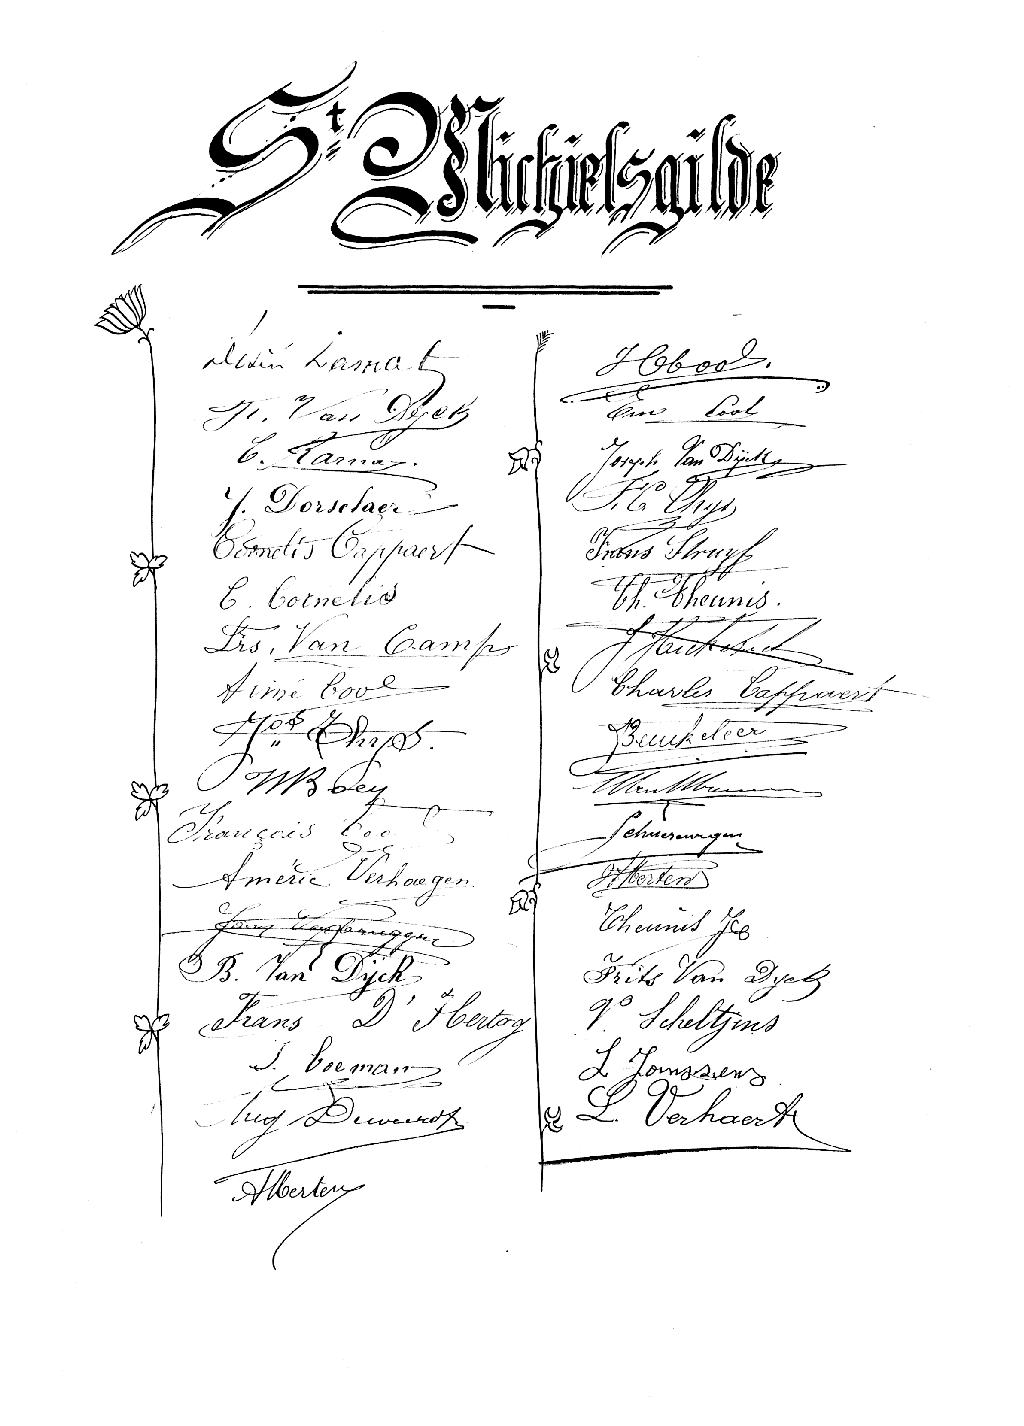 St Michielsgilde
Désiré Lamot
Fr. Van Dyck
C.
J. Dorselaer
Cornelis Cappaert
C. Cornelis
Frs. Van Camp
Aimé Cool
Jos Thys.
M Boey
François
Améric Verhaegen
B. Van Dyck
Frans D'Hertog
J. Coeman
Aug Duwaerdt
A Merten
H Cool.
Em Cool
Joseph Van Dijck
F. C. Thys
Frans Struyf
Th. Theunis.
J
Charles Cappaert
Beukeleer
Schuerwegen
Merten
Theunis Jos
Frits Van Dyck
V. Scheltjens
L Janssens
L. Verhaert